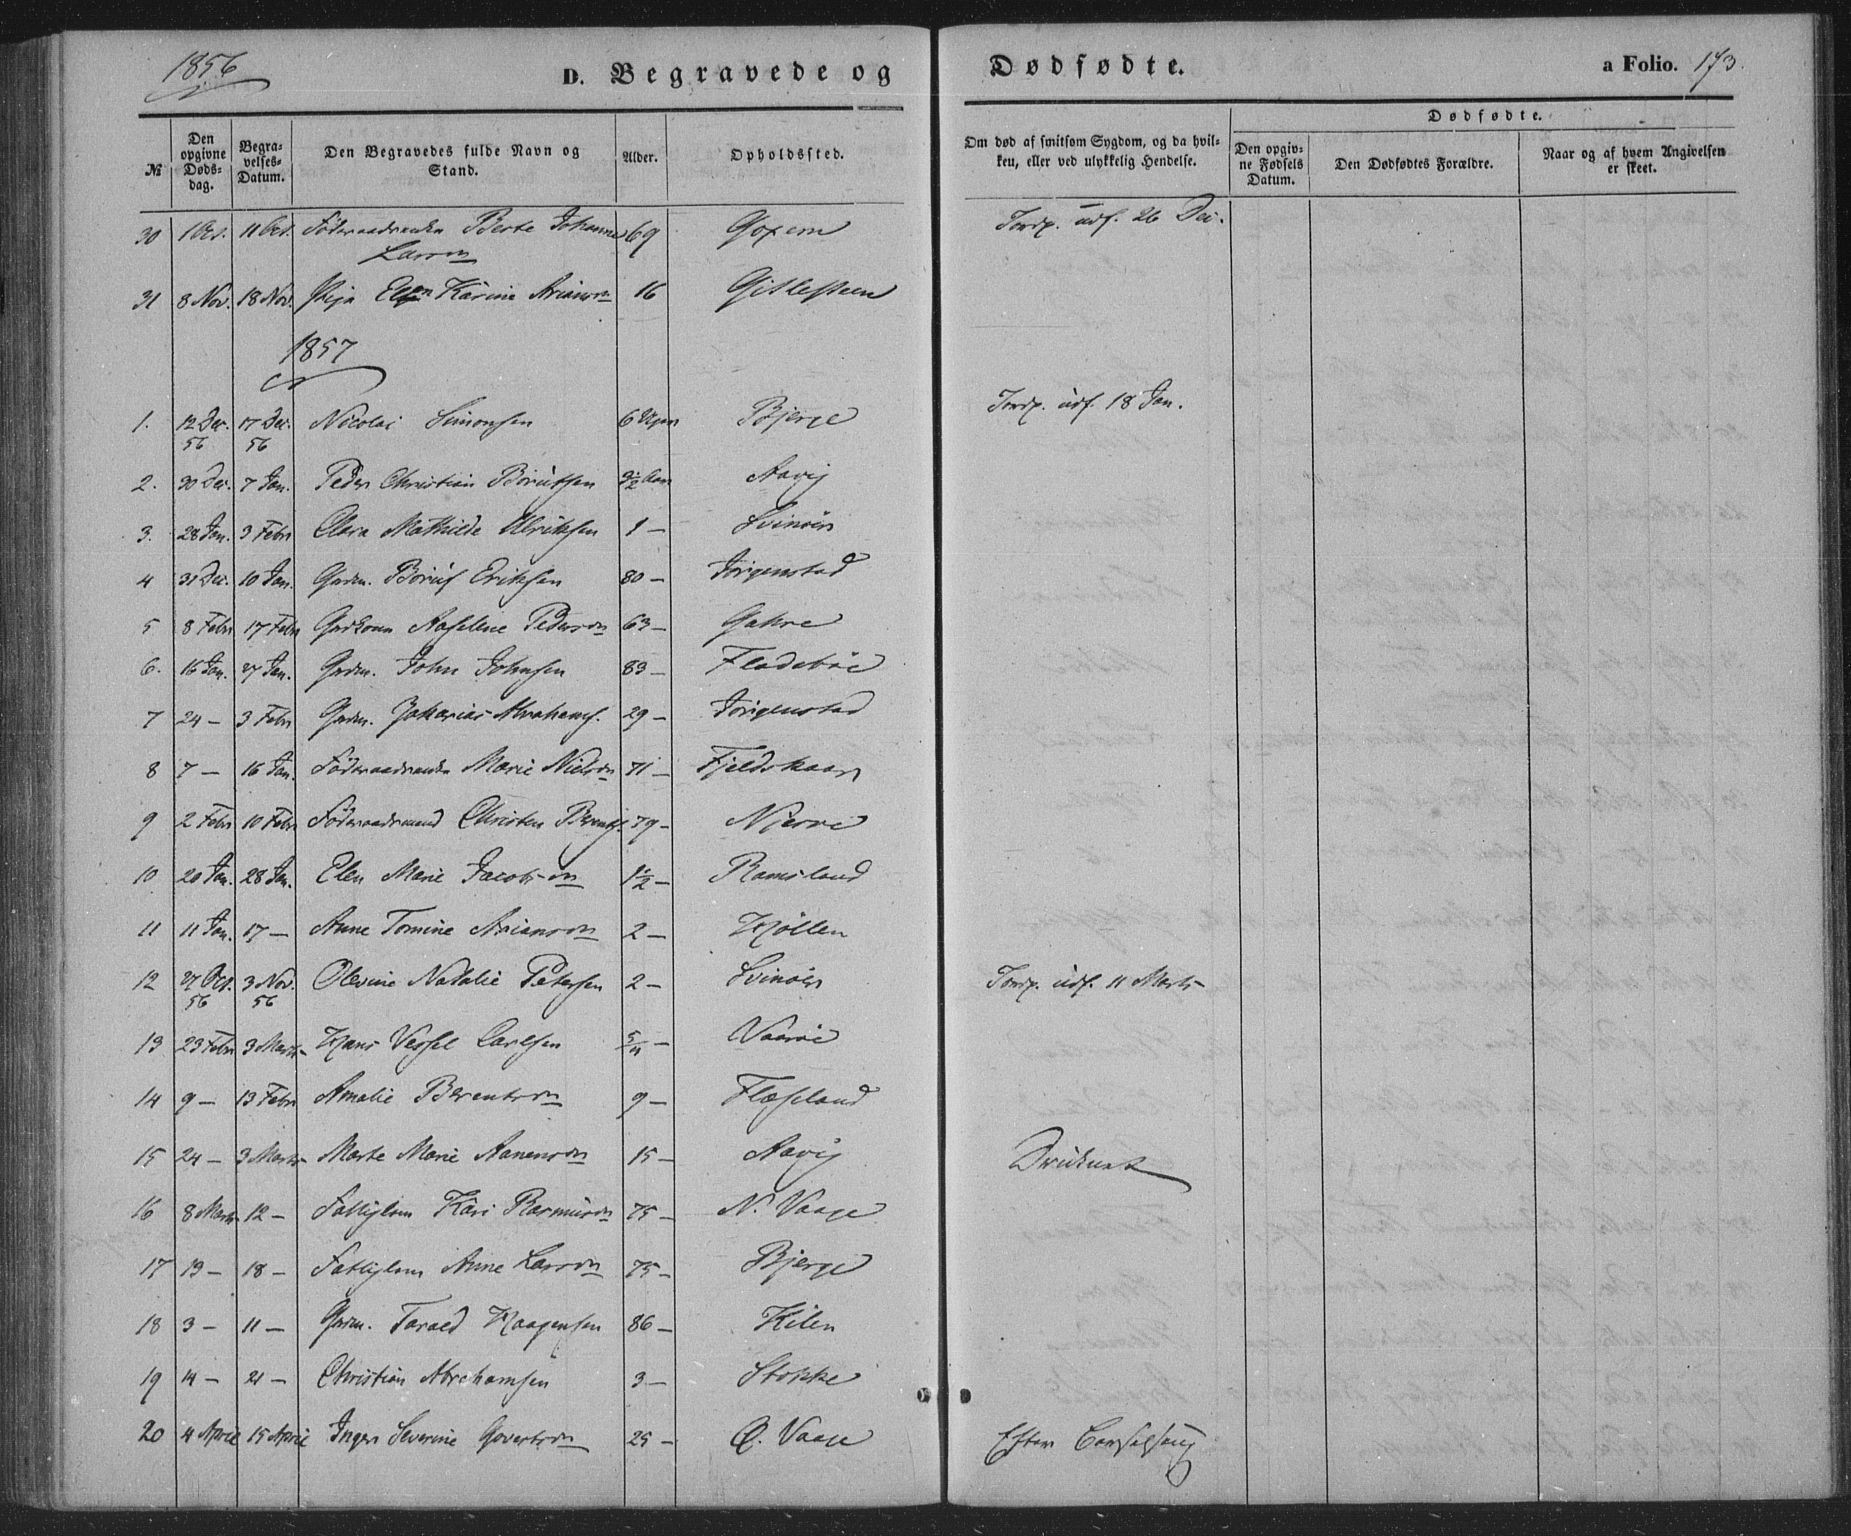 1856
D. Begravede og Dødfødte.
a Folio. 173.
№
Den opgivne Døds-dag.
Begra-velses-Datum.
Den Begravedes fulde Navn og Stand.
Alder.
Opholdssted.
Om død af smitsom Sygdom, og da hvil-ken, eller ved ulykkelig Hendelse.
Dødfødte.
Den opgiv-ne Fødsels Datum.
Den Dødfødtes Forældre.
Naar og af hvem Angivelsen er skeet.
30 1 Oct. 11 Oct. Føderaadsenke Berte Johanne 69
Larsen
Jordp. udf. 26 Dec.
31 8 Nov. 18 Nov. Pige Elen Karine 16 Gitlesteen
1857
1. 12 Dec. 17 Dec. Nicolai Simonsen 6 Uger Bjerge Jordp. udf. 18 Jan.
56 56
2. 30 Dec. 7 Jan. Peder Christian Aavig
3. 28 Jan. 3 Febr Clara Mathilde Ulriksen 1 — Svinöer
4 31 Dec. 10 Jan. Grdm. Eriksen 80 — Jörgenstad
5 8 Febr 17 Febr Grdkone Aaselene Pedersdn 63 — Gahre
6. 16 Jan. 27 Jan. Grdm. John Johnsen 83 — Fladeböe
7 24 — 3 Febr Grdm. Zakarias Abrahams. 29 — Jörgenstad
8 7 — 16 Jan. Føderaadsenke Marie Nielsdn 71 — Fjeldskaar
9 2 Febr 10 Febr Föderaadsmand Christen Berentss. 79 — Njerve
10 20 Jan. 28 Jan. Elen Marie Jacobsdn 1½ — Ramsland
11 11 Jan. 17 — Anne Tomine Ariansdn 2 — Kjöllen
12 27 Oct. 3 Nov. Olevine Natalie Petersen 2 — Svinöer Jordp. udf. 11 Marts
56 56
13 23 Febr 3 Marts Hans Vessel Carlsen 5/11 — Vaaröe
14 9 — 13 Febr Amalie Berentsdn 9 — Flæseland
15 24 — 3 Marts Marte Marie Aanensdn 15 — Aavig Druknet
16 8 Marts 12 — Fattiglem Kari Rasmusdn 75 — N. Vaage
17 13 — 18 — Fattiglem Anne Larsdn 75 — Bjerge
18 3 — 11 — Grdm. Tarald Haagensen 86 — Kilen
19 14 — 21 — Christian Abrahamsen 3 — Stokke
20 4 April 15 April Inger Severine Govertsdn 25 — O. Vaage Efter Barselseng